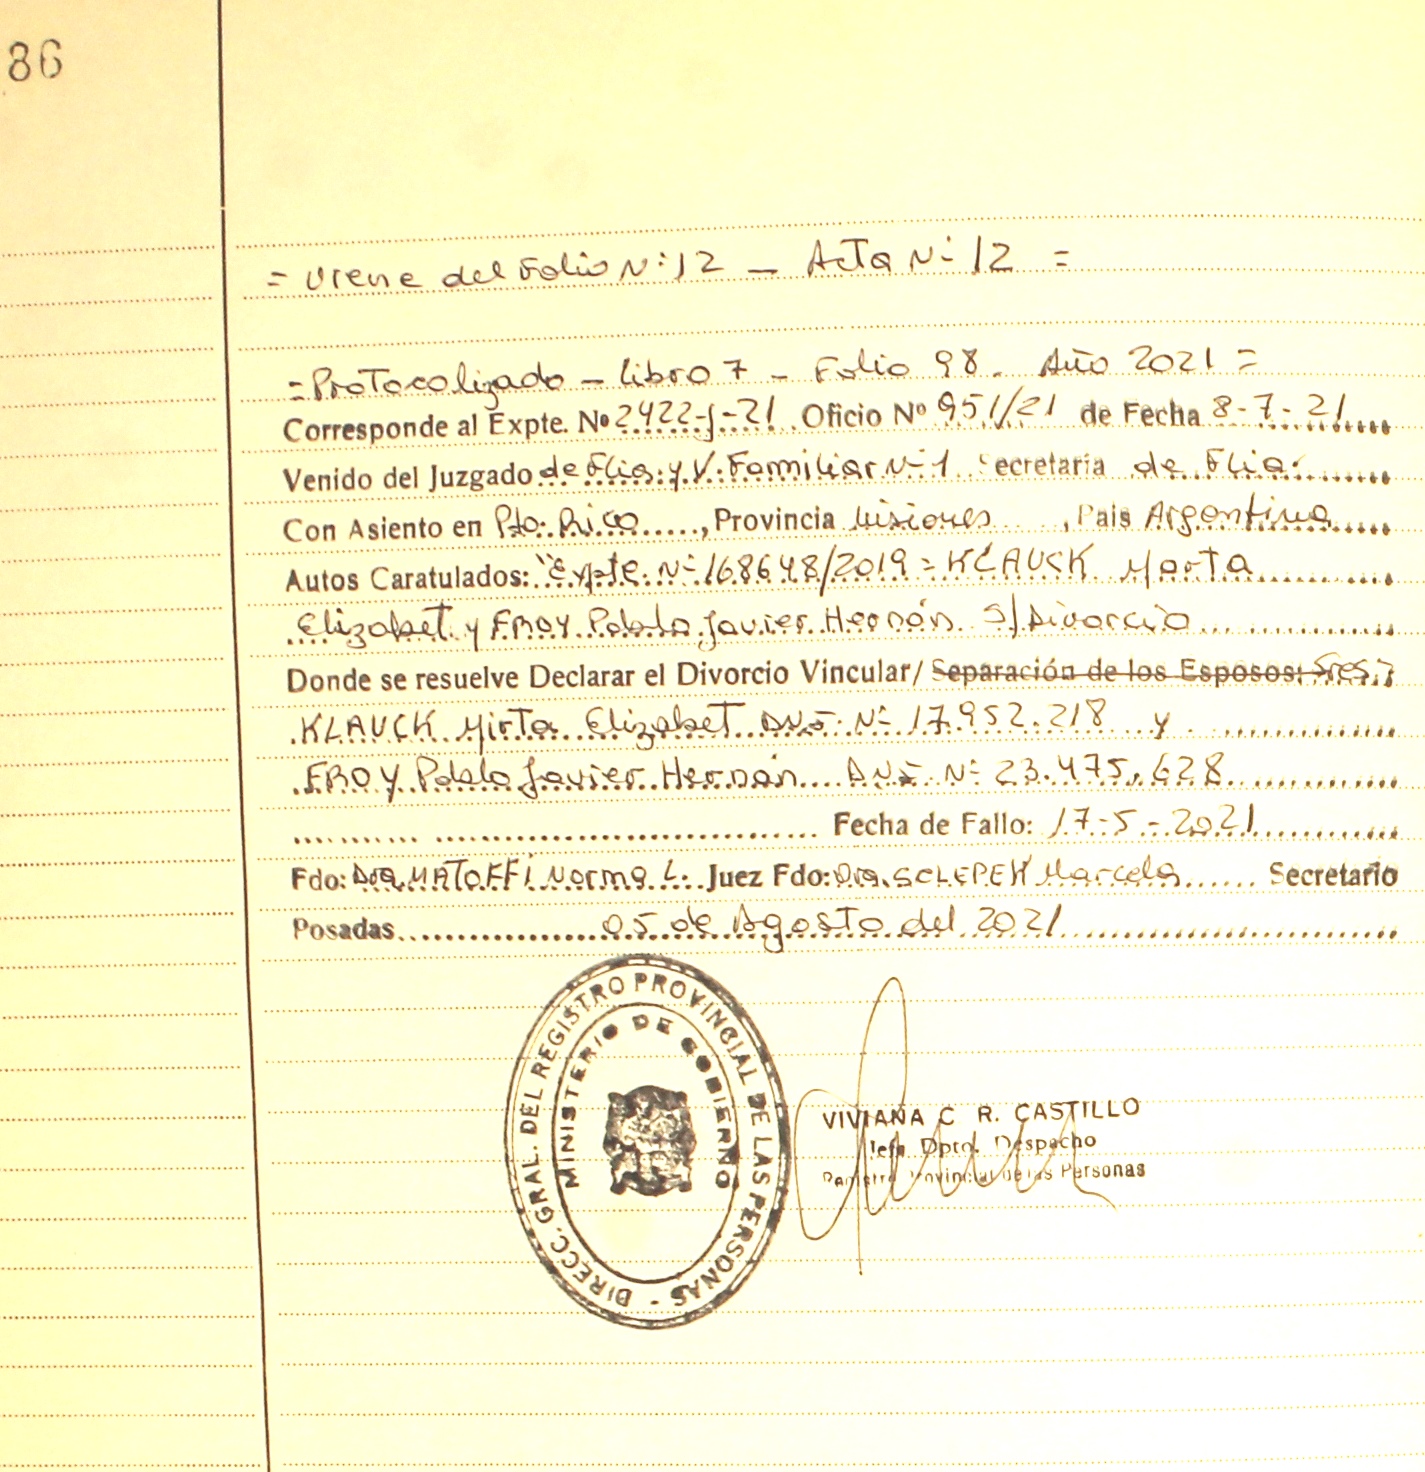 86
= Viene del Folio N: 12 - Acta N: 12 =
= Protocolizado - Libro 7 - Folio 98. Año 2021 =
Corresponde al Expte. Nº 2422-J-21 Oficio Nº 951/21 de Fecha 8-7-21
Venido del Juzgado de Flia. y V. Familiar N: 1 Secretaria de Flia.
Con Asiento en Pto. Rico, Provincia Misiones, Pais Argentina
Autos Caratulados: "Expte. N: 168648/2019 = KLAUCK Marta
Elizabet y FROY Pablo Javier Hernán S/Divorcio
Donde se resuelve Declarar el Divorcio Vincular/ Separación de los Esposos: Sres.:
KLAUCK Mirta Elizabet DNI. N: 17.952.218 y
FROY Pablo Javier Hernán DNI. N: 23.475.628
Fecha de Fallo: 17-5-2021
Fdo: Dra. MATOFFI Norma L. Juez Fdo: Dra. SCLEPEK Marcela Secretario
Posadas 05 de Agosto del 2021
DIRECC. GRAL. DEL REGISTRO PROVINCIAL DE LAS PERSONAS -
MINISTERIO DE GOBIERNO
VIVIANA C R. CASTILLO
Jefa Dpto. Despacho
Registro Provincial de las Personas